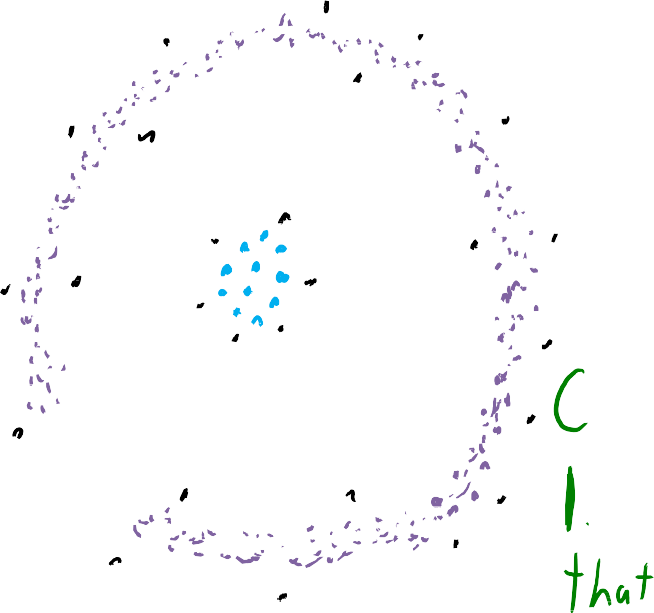 C
1.
that